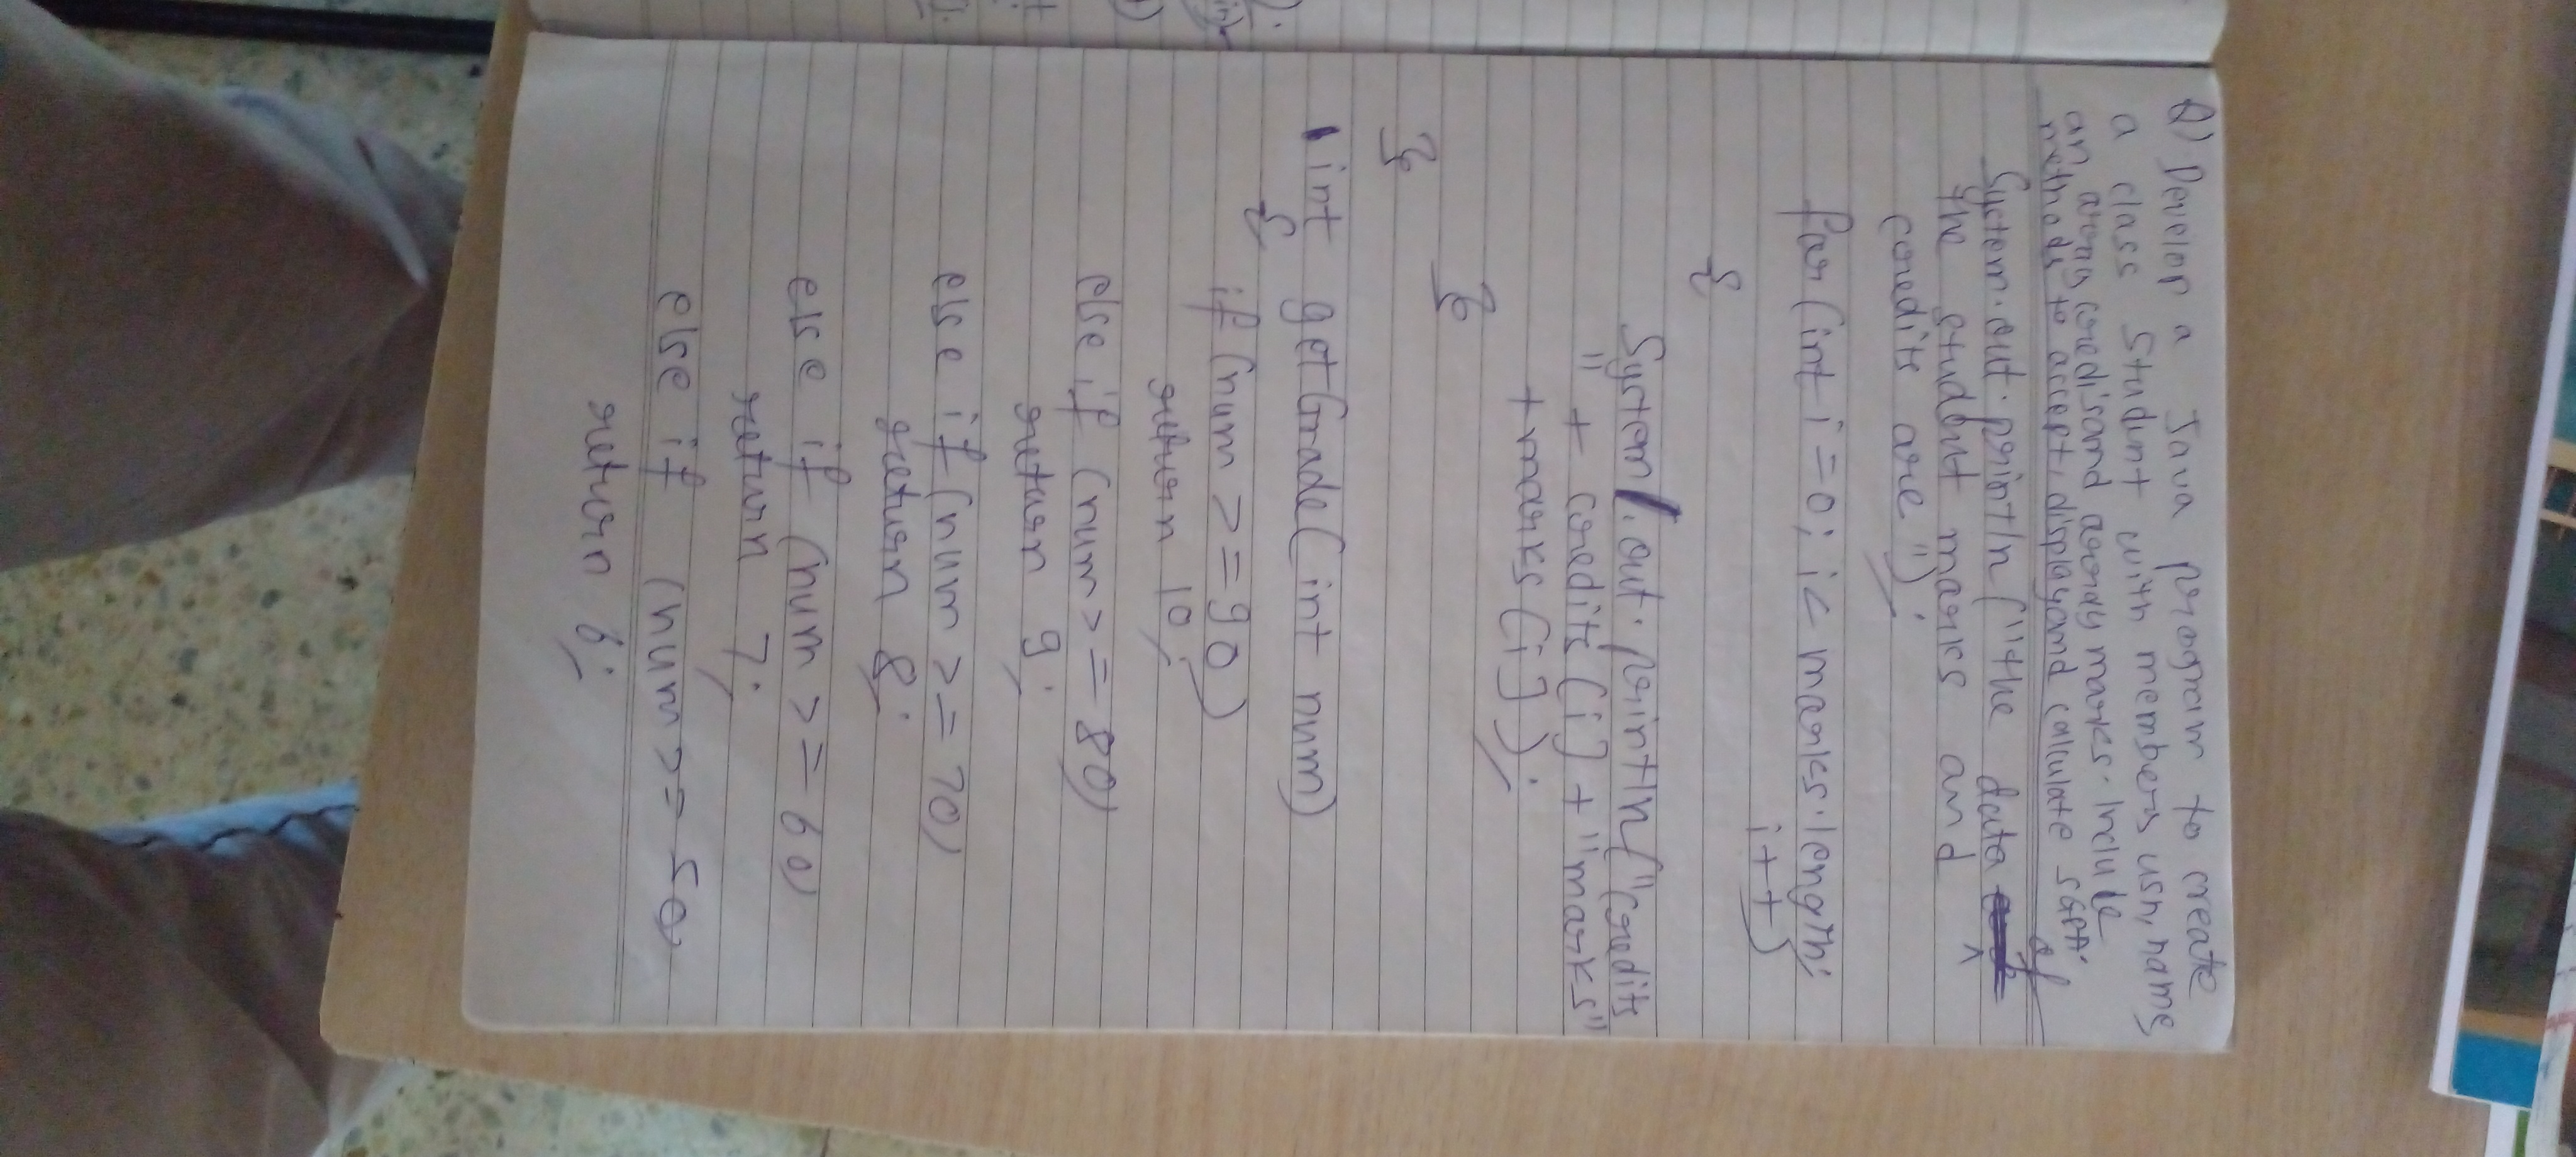 Q) Develop a Java program to create
a class Student with members usn, name,
an array credits and array marks. Include
methods to accept, display and calculate SGPA
System.out.println("the data of
the student marks and
credits are");
for(int i=0; i< marks.length;
i++)
{
System.out.println("credits
" + credits[i] + "marks"
+marks[i]);
}
}
int getGrade(int num)
{
if (num >= 90)
return 10;
else if (num >= 80)
return 9;
else if (num >= 70)
return 8;
else if (num >= 60)
return 7;
else if (num >= 50)
return 6;